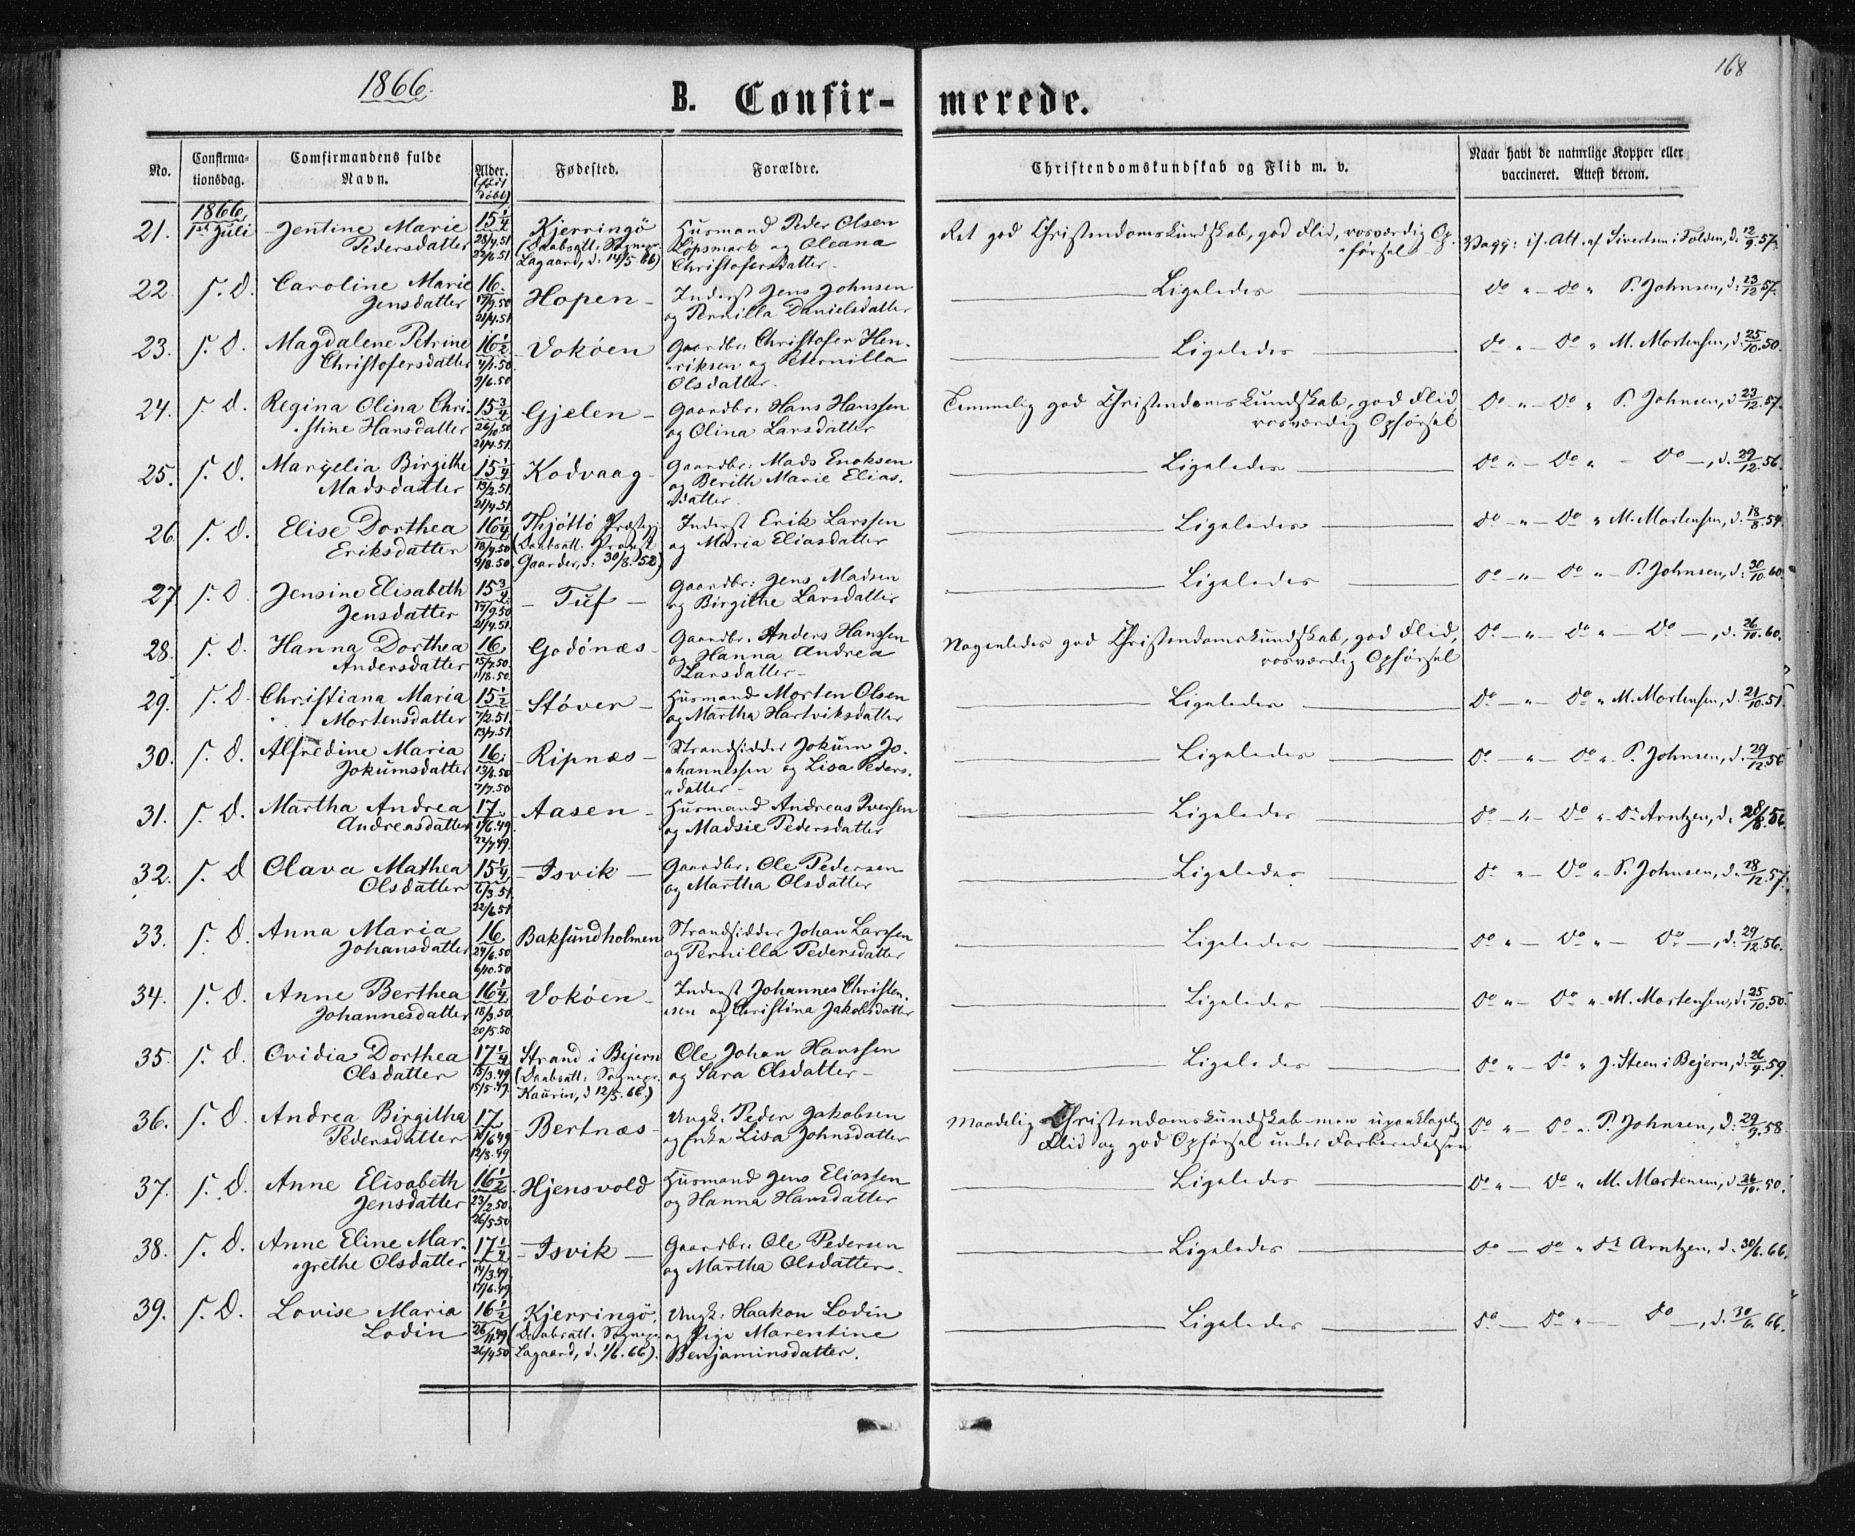 1866.
168
B. Confir- merede.
No. Confirmationsdag. Comfirmandens fulde Navn. Alder. (født døbt) Fødested. Forældre. Christendomskundskab og Flid m. v. Naar havt de naturlige Kopper eller vaccineret. Attest derom.
1866
21. 1ste Juli Jentine Marie 15 1/4 Kjerringö Husmand Peder Olsen Ret god Christendomskundskab, god Flid, rosværdig Op- Vacc: if. Att. af Sivertsen i Folden, d. 12/9.57.
Pedersdatter 28/4.51 (Daabsatt. Sognepr. Löpsmark og Oleana förſel
22/6.51 Lagaard, d. 14/5.66) Christofersdatter
22. s. D. Caroline Marie 16. Hopen Inderst Jens Johnsen Ligeledes do " do " P. Johnsen, d. 23/12.57.
Jensdatter 17/9.50 og Pernilla Danielsdatter
21/4.51
23. s. D. Magdalene Petrine 16 1/2 Vokøen Gaardbr. Christofer Hen- Ligeledes do " do " M. Mortensen, d. 25/10.50.
Christofersdatter 4/1.50 riksen og Peternilla
9/6.50 Olsdatter.
24. s. D. Regina Olina Chri- 15 3/4 Gjelen Gaardbr: Hans Hanssen Temmelig god Christendomskundskab, god Flid do " do " P. Johnsen, d. 23/12.57.
stine Hansdatter 26/10.50 og Olina Larsdatter rosværdig Opførsel
21/4.51
25. s. D. Margelia Birgithe 15 1/4 Kodvaag Gaardbr: Mads Enoksen Ligeledes do " do " do, d. 29/12.56.
Madsdatter 13/2.51 og Berith Marie Elias-
21/4.51 datter
26. s. D. Elise Dorthea 16 1/4 Thjöttö Præstegj. Inderst Erik Larssen Ligeledes do " do " M. Mortensen, d. 18/8.54.
Eriksdatter 18/4.50 (Daabsatt. Provst og Maria Eliasdatter
9/8.50 Gaarder, d. 30/8.52)
27 s. D. Jensine Elisabeth 15 3/4 Tuf Gaardbr: Jens Madsen Ligeledes do " do " P. Johnsen, d. 30/10.60.
Jensdatter 17/9.50 og Birgithe Larsdatter
21/4.51
28. s. D. Hanna Dorthea 16 Godönæs Gaardbr. Anders Hanssen Nogenledes god Christendomskundskab, god Flid, do " do " do, d. 26/10.60.
Andersdatter 15/7.50 og Hanna Andrea rosværdig Opførsel
11/8.50 Larsdatter
29. s. D. Christiana Maria 15 1/2 Støver Husmand Morten Olsen Ligeledes do " do " M. Mortensen, d. 21/10.51.
Mortensdatter 7/2.51 og Martha Hartviksdatter
13/7.51
30. s. D. Alfredine Maria 16. Ripnæs Strandsidder Jokum Jo- Ligeledes do " do " P. Johnsen, d. 29/12.56
Jokumsdatter 13/4.50 hannessen og Lisa Peders-
7/7.50 datter
31. s. D. Martha Andrea 17 Aasen Husmand Andreas Iversen Ligeledes do " do " Dr Arntzen, d. 28/8.56.
Andreasdatter 17/6.49. og Madsie Pedersdatter
22/7.49.
32. s. D Olava Mathea 15 1/4 Isvik Gaardbr. Ole Pedersen Ligeledes do " do " P. Johnsen, d. 18/12.57.
Olsdatter 6/3.51 og Martha Olsdatter
22/6.51
33. s. D. Anna Maria 16 Baksundholmen Strandsidder Johan Larssen Ligeledes do " do " do, d. 29/12.56.
Johansdatter 24/6.50 og Pernilla Pedersdatter
6/10.50
34. s. D. Anne Berthea 16 1/4 Vokøen Inderst Johannes Christen- Ligeledes do " do " M. Mortensen, d. 25/10.50.
Johannesdatter 18/3.50 sen og Christina Jakobsdatter
20/5.50
35. s. D. Ovidia Dorthea 17 1/4 Strand i Bejern Ole Johan Hanssen Ligeledes do " do " J. Steen i Bejern, d. 26/9.59.
Olsdatter 15/3.49 (Daabsatt: Sognepr. og Sara Olsdatter
15/5.49. Kaurin, d 12/5.66.)
36. s. D. Andrea Birgitha 17 Bertnæs Ungk. Peder Jakobsen Maadelig Christendomskundskab men upaaklagelig do " do " P. Johnsen, d. 29/9.58
Pedersdatter 11/6.49 og Enke Lisa Johnsdatter Flid og god Opførsel under Forberedelsen
12/8.49
37. s. D. Anne Elisabeth 16 1/2 Hjensvold Husmand Jens Eliassen Ligeledes do " do " M. Mortensen, d. 26/10.50.
Jensdatter 23/2.50 og Hanna Hansdatter
26/5.50
38. s. D. Anne Eline Mar- 17 1/4 Isvik Gaardbr. Ole Pedersen Ligeledes do do " Dr Arntzen, d. 30/6.66.
grethe Olsdatter 14/3.49. og Martha Olsdatter.
17/6.49
39. s. D. Lovise Maria 16 1/2 Kjerringö. Ungk: Haakon Lodin Ligeledes do do " do, d. 30/6.66.
Lodin 26/11.49 (Daabsatt: Sognepr. og Pige Marentine
26/4.50 Lagaard, d. 1/6.66). Benjaminsdatter.